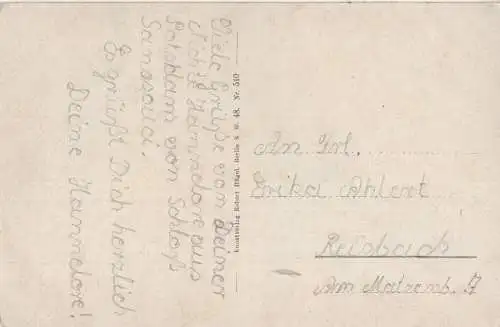 Viele Grüße von Deiner
Nichte Hannelore aus
Potsdam von Schloß
Sanssouci.
Es grüßt Dich herzlich
Deine Hannelore!
Kunstverlag Robert Berlin S.W. 48. Nr. 510
An Frl.
Erika Ahlert
Am